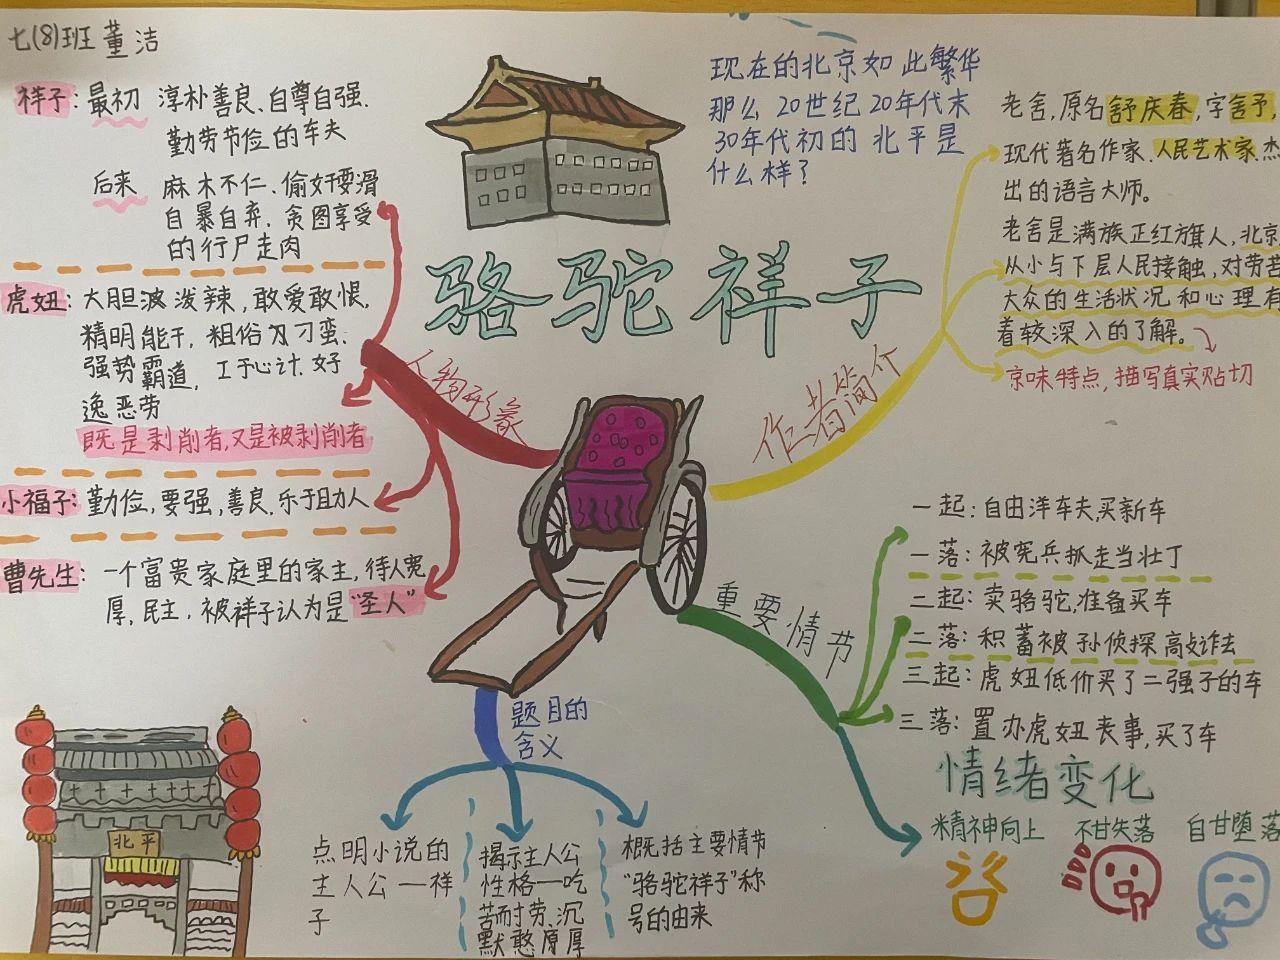 七(8)班 董洁
祥子：最初 淳朴善良、自尊自强、
勤劳节俭的车夫
后来 麻木不仁、偷奸耍滑
自暴自弃、贪图享受
的行尸走肉
虎妞：大胆泼辣，敢爱敢恨，
精明能干，粗俗刁蛮、
强势霸道，工于心计、好
逸恶劳
既是剥削者,又是被剥削者
小福子：勤俭，要强，善良、乐于助人
曹先生：一个富贵家庭里的家主，待人宽
厚，民主，被祥子认为是"圣人"
人物形象
现在的北京如此繁华
那么20世纪20年代末
30年代初的北平是
什么样？
骆驼祥子
作者简介
老舍，原名舒庆春，字舍予，
现代著名作家、人民艺术家、杰
出的语言大师。
老舍是满族正红旗人，北京
从小与下层人民接触，对劳苦
大众的生活状况和心理有
着较深入的了解。
京味特点，描写真实贴切
重要情节
一起：自由洋车夫,买新车
一落：被宪兵抓走当壮丁
二起：卖骆驼,准备买车
二落：积蓄被孙侦探敲诈去
三起：虎妞低价买了二强子的车
三落：置办虎妞丧事，买了车
情绪变化
精神向上 不甘失落 自甘堕落
题目的
含义
点明小说的
主人公—祥
子
揭示主人公
性格—吃
苦耐劳、沉
默憨厚
概括主要情节
"骆驼祥子"称
号的由来
北平